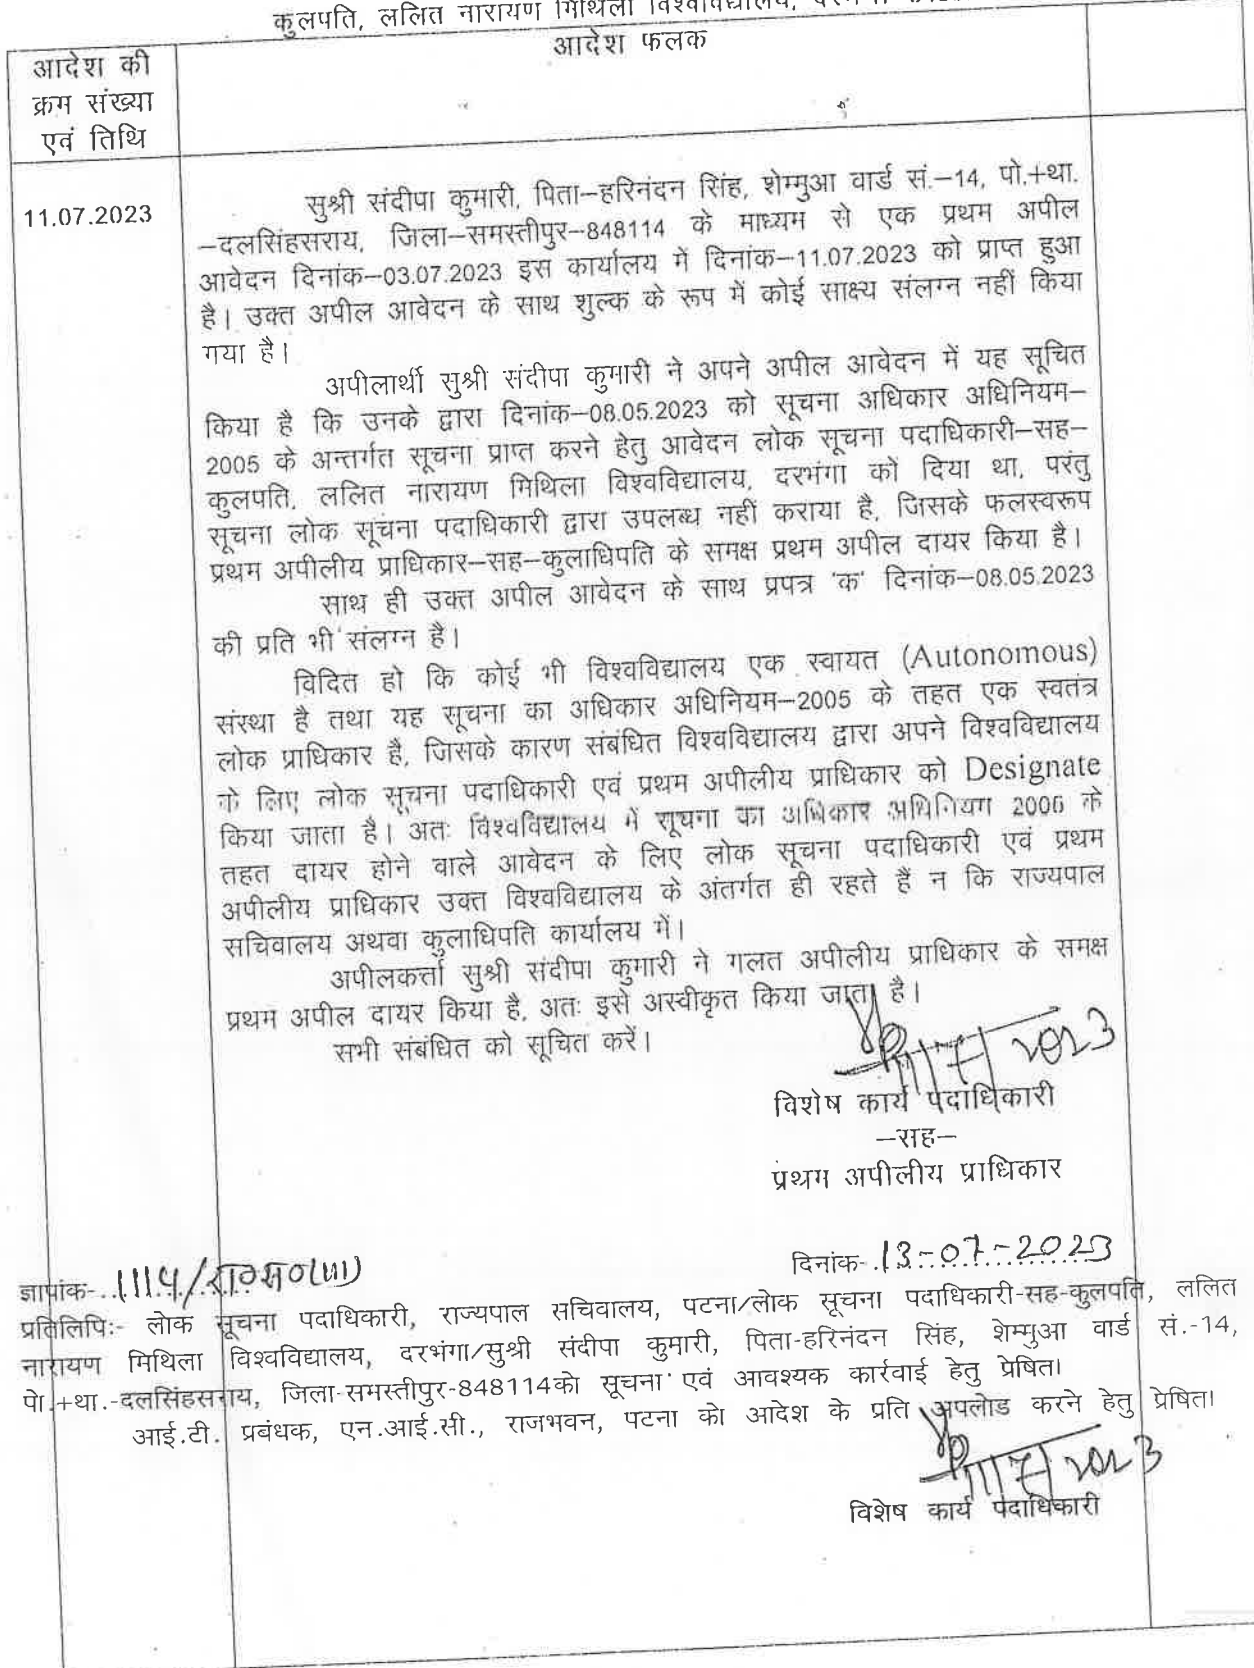 कुलपति, ललित नारायण मिथिला विश्वविद्यालय,
आदेश की
क्रम संख्या
एवं तिथि
आदेश फलक
11.07.2023
सुश्री संदीपा कुमारी, पिता–हरिनंदन सिंह, शेम्मुआ वार्ड सं.–14, पो.+था.
–दलसिंहसराय, जिला–समस्तीपुर–848114 के माध्यम से एक प्रथम अपील
आवेदन दिनांक–03.07.2023 इस कार्यालय में दिनांक–11.07.2023 को प्राप्त हुआ
है। उक्त अपील आवेदन के साथ शुल्क के रूप में कोई साक्ष्य संलग्न नहीं किया
गया है।
अपीलार्थी सुश्री संदीपा कुमारी ने अपने अपील आवेदन में यह सूचित
किया है कि उनके द्वारा दिनांक–08.05.2023 को सूचना अधिकार अधिनियम–
2005 के अन्तर्गत सूचना प्राप्त करने हेतु आवेदन लोक सूचना पदाधिकारी–सह–
कुलपति, ललित नारायण मिथिला विश्वविद्यालय, दरभंगा को दिया था, परंतु
सूचना लोक सूचना पदाधिकारी द्वारा उपलब्ध नहीं कराया है, जिसके फलस्वरूप
प्रथम अपीलीय प्राधिकार–सह–कुलाधिपति के समक्ष प्रथम अपील दायर किया है।
साथ ही उक्त अपील आवेदन के साथ प्रपत्र 'क' दिनांक–08.05.2023
की प्रति भी संलग्न है।
विदित हो कि कोई भी विश्वविद्यालय एक स्वायत (Autonomous)
संस्था है तथा यह सूचना का अधिकार अधिनियम–2005 के तहत एक स्वतंत्र
लोक प्राधिकार है, जिसके कारण संबंधित विश्वविद्यालय द्वारा अपने विश्वविद्यालय
के लिए लोक सूचना पदाधिकारी एवं प्रथम अपीलीय प्राधिकार को Designate
किया जाता है। अतः विश्वविद्यालय में सूचना का अधिकार अधिनियम 2005 के
तहत दायर होने वाले आवेदन के लिए लोक सूचना पदाधिकारी एवं प्रथम
अपीलीय प्राधिकार उक्त विश्वविद्यालय के अंतर्गत ही रहते हैं न कि राज्यपाल
सचिवालय अथवा कुलाधिपति कार्यालय में।
अपीलकर्त्ता सुश्री संदीपा कुमारी ने गलत अपीलीय प्राधिकार के समक्ष
प्रथम अपील दायर किया है, अतः इसे अस्वीकृत किया जाता है।
सभी संबंधित को सूचित करें।
2023
विशेष कार्य पदाधिकारी
–सह–
प्रथम अपीलीय प्राधिकार
ज्ञापांक- 1114/रा०स०(III) दिनांक- 13-07-2023
प्रतिलिपिः- लोक सूचना पदाधिकारी, राज्यपाल सचिवालय, पटना/लोक सूचना पदाधिकारी-सह-कुलपति, ललित
नारायण मिथिला विश्वविद्यालय, दरभंगा/सुश्री संदीपा कुमारी, पिता-हरिनंदन सिंह, शेम्मुआ वार्ड सं.-14,
पो.+था.-दलसिंहसराय, जिला-समस्तीपुर-848114को सूचना एवं आवश्यक कार्रवाई हेतु प्रेषित।
आई.टी. प्रबंधक, एन.आई.सी., राजभवन, पटना को आदेश के प्रति अपलोड करने हेतु प्रेषित।
2023
विशेष कार्य पदाधिकारी